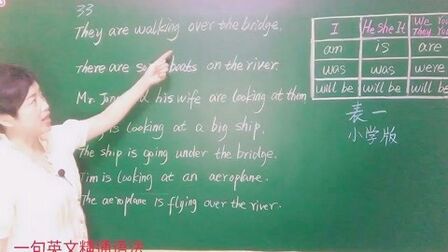 33
They are walking over the bridge.
There are boats on the river.
Mr. his wife are looking at them
is looking at a big ship.
The ship is going under the bridge.
Tim is looking at an aeroplane.
The aeroplane is flying over the river.
I He She It We You They
am is are
was was were
will be will be will be
表一
小学版
一句英文精通语法